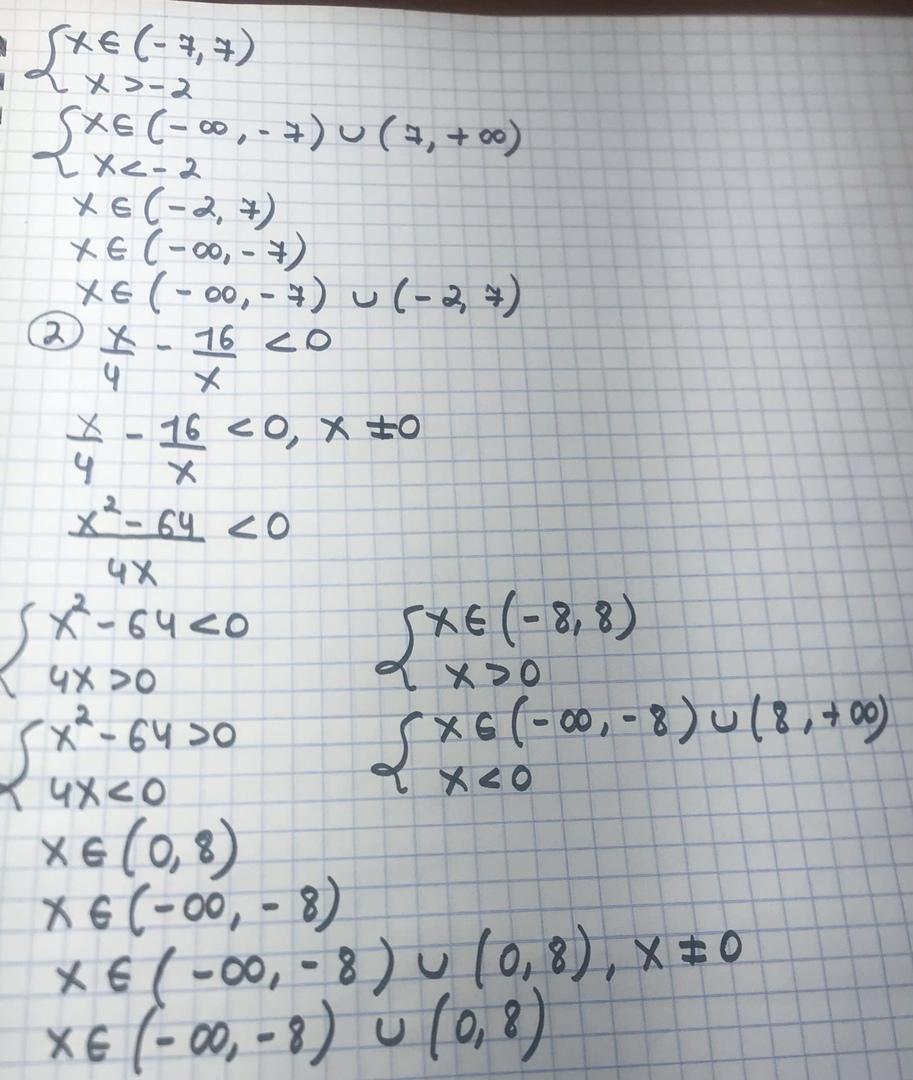 {x ∈ (-7, 7)
x > -2
{x ∈ (-∞, -7) ∪ (7, +∞)
x < -2
x ∈ (-2, 7)
x ∈ (-∞, -7)
x ∈ (-∞, -7) ∪ (-2, 7)
② x/4 - 16/x < 0
x/4 - 16/x < 0, x ≠ 0
(x² - 64)/4x < 0
{x² - 64 < 0
4x > 0
{x² - 64 > 0
4x < 0
{x ∈ (-8, 8)
x > 0
{x ∈ (-∞, -8) ∪ (8, +∞)
x < 0
x ∈ (0, 8)
x ∈ (-∞, -8)
x ∈ (-∞, -8) ∪ (0, 8), x ≠ 0
x ∈ (-∞, -8) ∪ (0, 8)